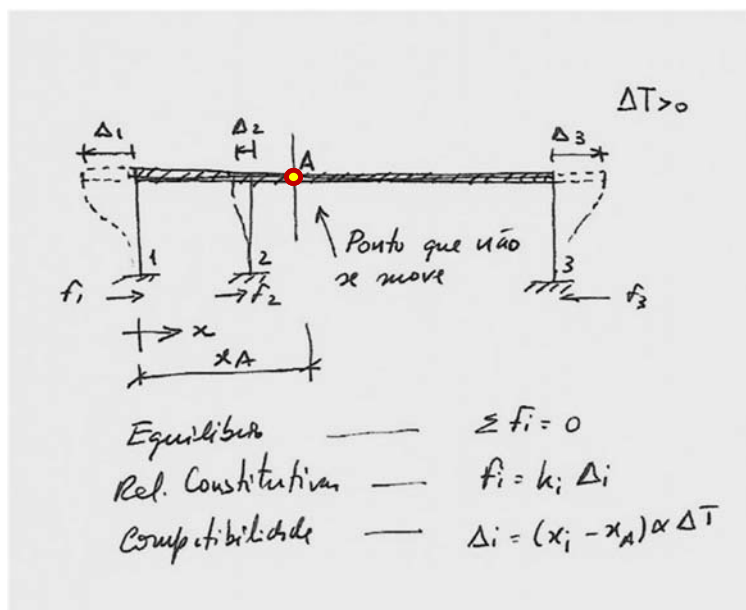 ΔT>0
Δ1 Δ2 A Δ3
Ponto que não
se move
1 2 3
f1 f2 f3
x
xA
Equilíbrio — Σ fi = 0
Rel. Constitutivas — fi = ki Δi
Compatibilidade — Δi = (xi - xA) α ΔT